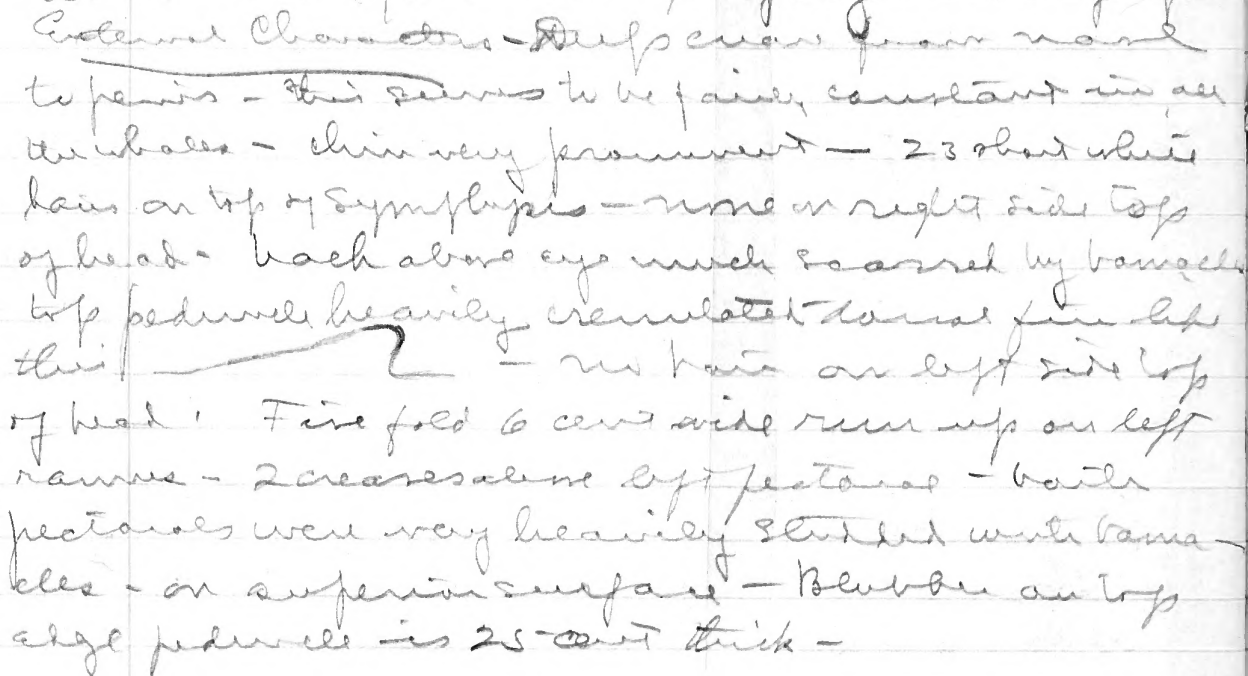 External Characters - Deep crease from navel
to penis - this seems to be fairly constant in all
the whales - chin very prominent - 23 short white
hairs on top of symphysis - none on right side top
of head - back above eye much scarred by barnacles
top peduncle heavily crenulated dorsal fin like
this - no hair on left side top
of head. Five fold 6 cent wide run up on left
ramus - 2 creases above left pectoral - both
pectorals were very heavily studded with barna-
cles - on superior surface - Blubber on top
edge peduncle is 25 cent thick -